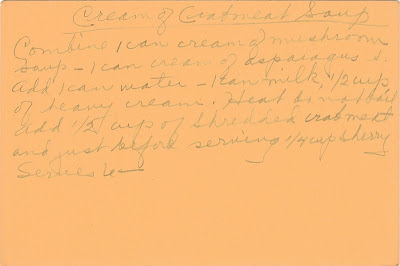 Cream of Crabmeat Soup
Combine 1 can cream of mushroom
soup - 1 can cream of asparagus s.
add 1 can water - 1 can milk, 1/2 cup
of heavy cream. Heat do not boil
add 1/2 cup of shredded crabmeat
and just before serving 1/4 cup sherry
Serves 6